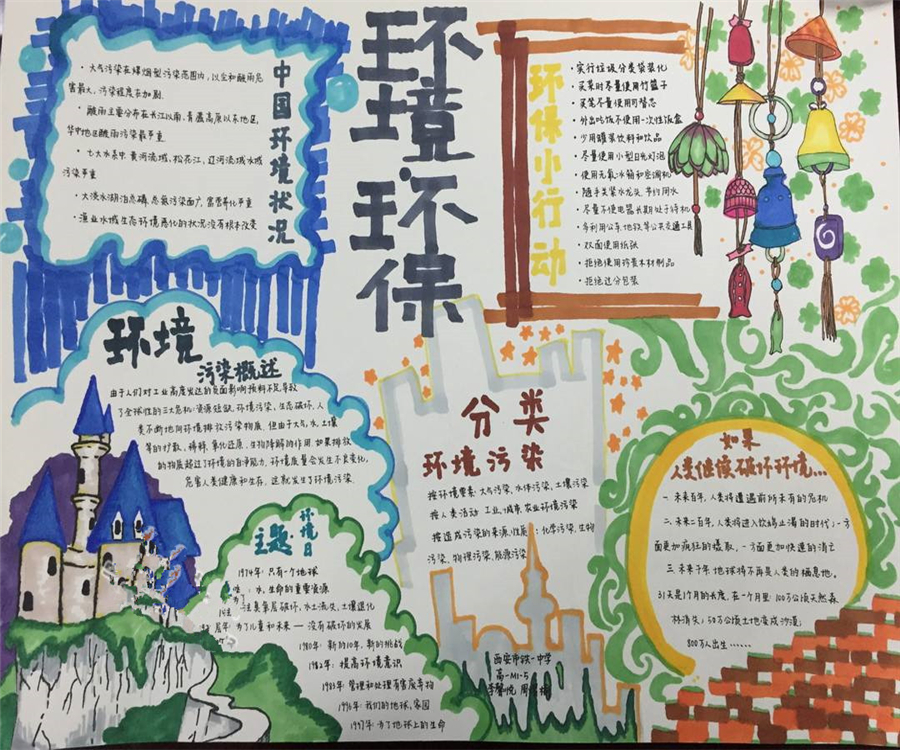 环境环保
中国环境状况
· 大气污染在煤烟型污染范围内,以尘和酸雨危
害最大,污染程度在加剧.
· 酸雨主要分布在长江以南,青藏高原以东地区,
华中地区酸雨污染最严重.
· 七大水系中黄河流域,松花江,辽河流域水域
污染严重
· 大淡水湖泊总磷,总氮污染面广,富营养化严重
· 渔业水域生态环境恶化的状况没有根本改变
环保小行动
· 实行垃圾分类袋装化
· 买菜时尽量使用竹篮子
· 买笔尽量使用可替芯
· 外出吃饭不使用一次性饭盒
· 少用罐装饮料和饮品
· 尽量使用小型日光灯泡
· 使用无氟冰箱和空调机
· 随手关紧水龙头,节约用水
· 尽量不使电器长期处于待机
· 多利用公车,地铁等公共交通工具
· 双面使用纸张
· 拒绝使用珍贵木材制品
· 拒绝过分包装
环境
污染概述
由于人们对工业高度发达的负面影响预料不足导致
了全球性的三大危机:资源短缺,环境污染,生态破坏.人
类不断地向环境排放污染物质.但由于大气,水,土壤
等的扩散,稀释,氧化还原,生物降解的作用.如果排放
的物质超过了环境的自净能力,环境质量会发生不良变化,
危害人类健康和生存,这就发生了环境污染.
分类
环境污染
按环境要素:大气污染,水体污染,土壤污染
按人类活动:工业,城市,农业环境污染
按造成污染的来源,性质:化学污染,生物
污染,物理污染,能源污染
环境日
主题
1974年:只有一个地球
水,生命的重要资源
注意臭氧层破坏,水土流失,土壤退化
为了儿童和未来——没有破坏的发展
1980年:新的10年,新的挑战
1982年:提高环境意识
1983年:管理和处理有害废弃物
1996年:我们的地球,家园
1997年:为了地球上的生命
如果
人类继续破坏环境…
一.未来百年,人类将遭遇前所未有的危机
二.未来二百年,人类将进入饮鸩止渴的时代,一方
面更加疯狂的攫取,一方面更加快速的消亡
三.未来千年,地球将不再是人类的栖息地.
31天是1个月的长度,在一个月里:100万公顷天然森
林消失;50万公顷土地变成沙漠
800万人出生……
西安市铁一中学
高一M1-5